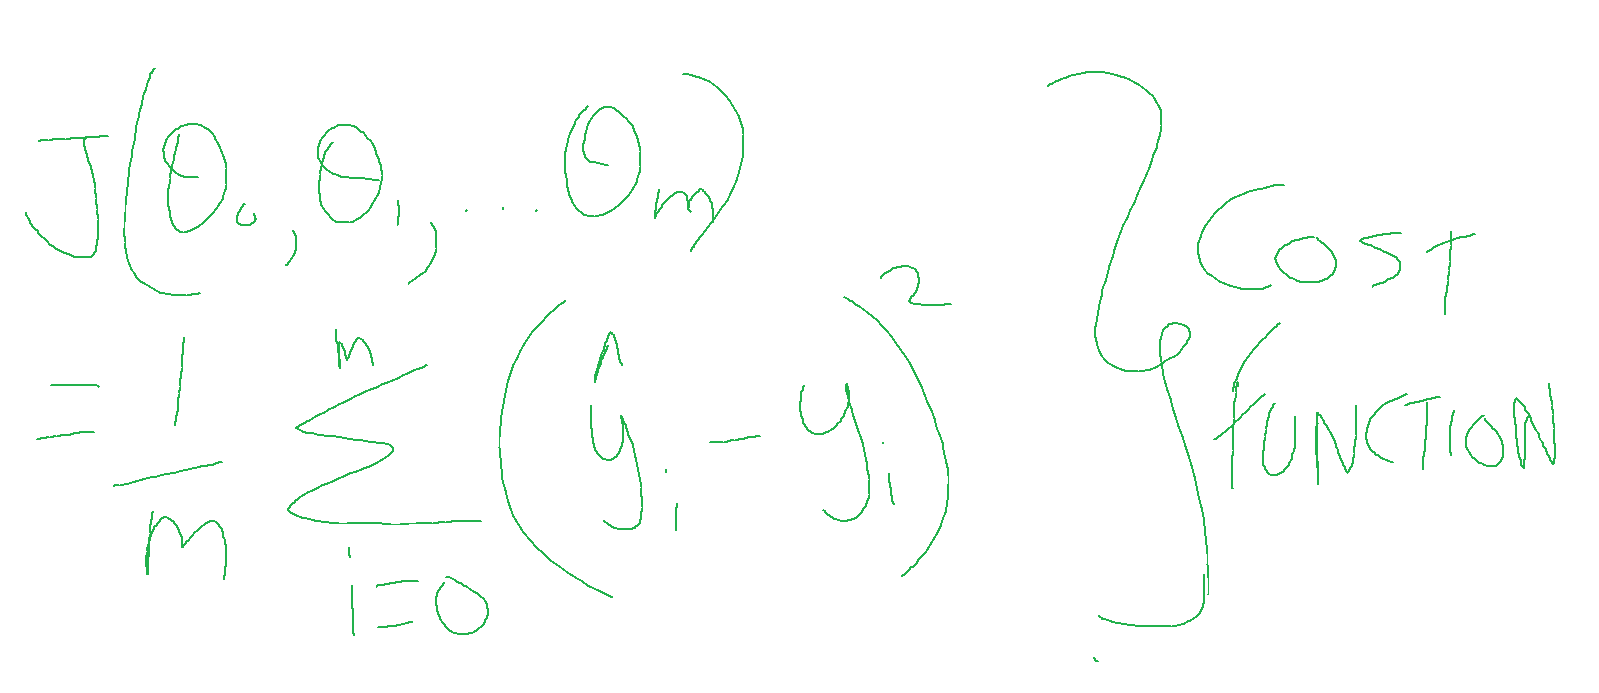 J(θ₀, θ₁, ... θₘ)
= 1/m ∑ᵢ₌₀ⁿ (ŷᵢ - yᵢ)²
} COST
FUNCTION